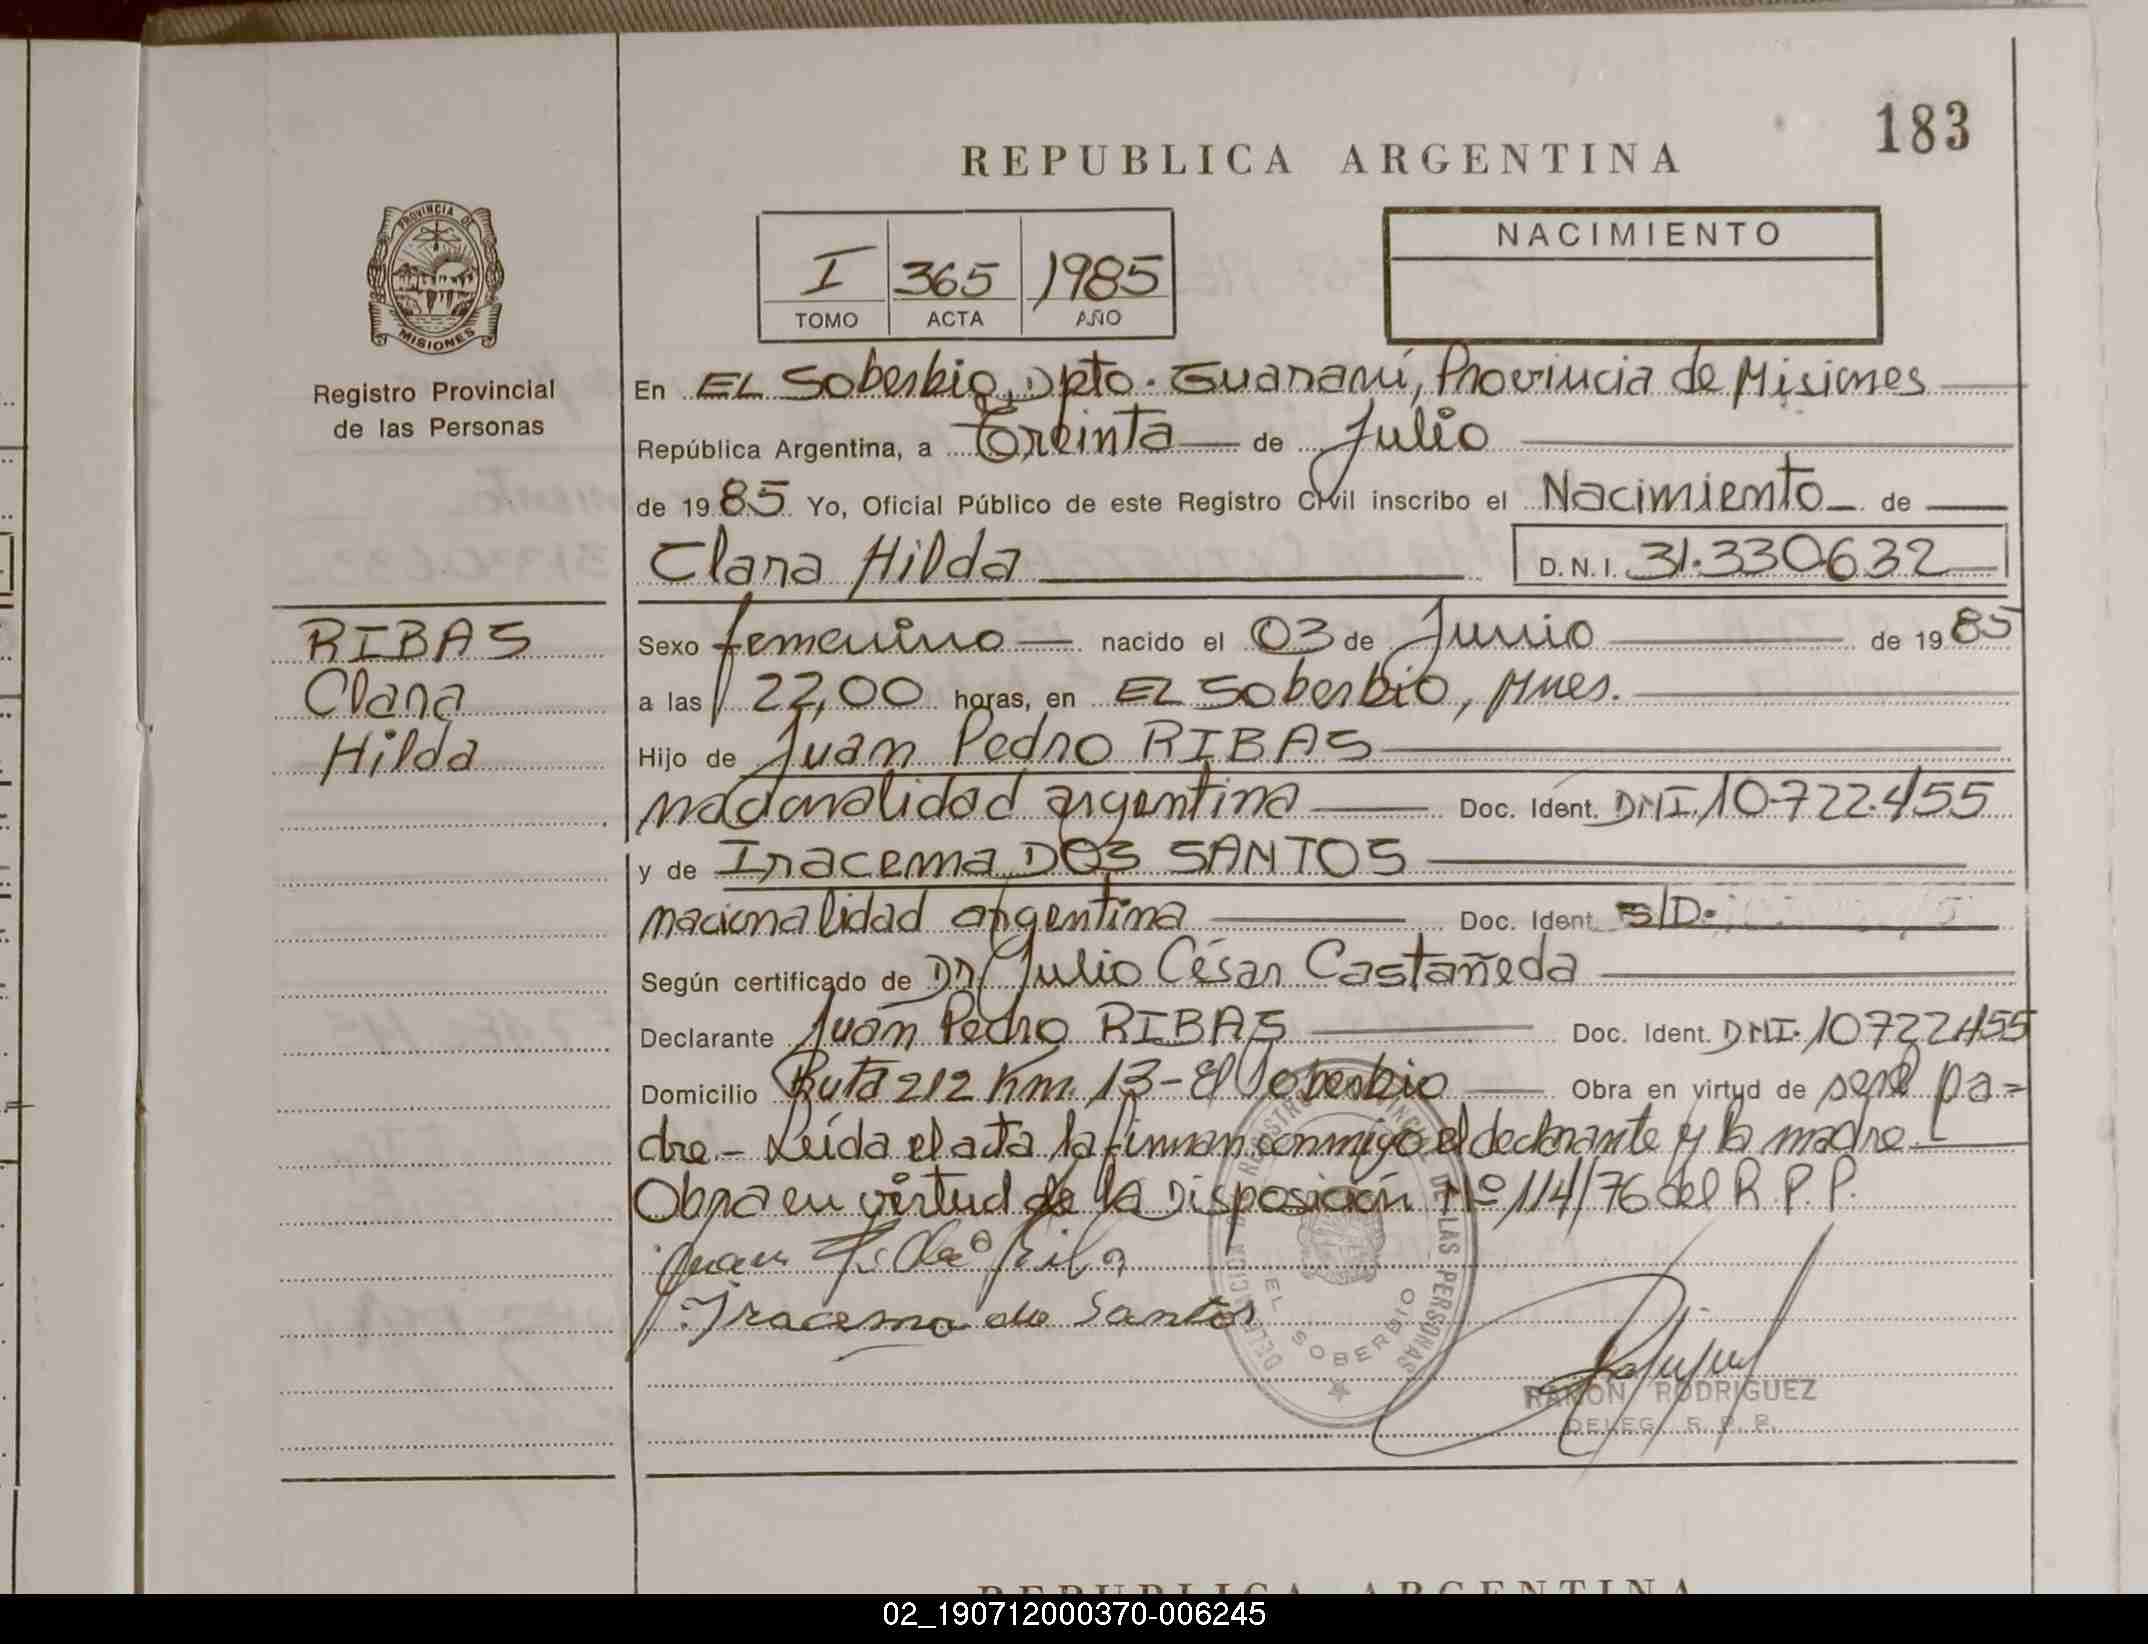 183
REPUBLICA ARGENTINA
PROVINCIA DE
MISIONES
Registro Provincial
de las Personas
I 365 1985
TOMO ACTA AÑO
NACIMIENTO
En EL Soberbio, Dpto. Guaraní, Provincia de Misiones
República Argentina, a Treinta de Julio
de 1985 Yo, Oficial Público de este Registro Civil inscribo el Nacimiento de
Clara Hilda D.N.I. 31.330632
RIBAS
Clara
Hilda
Sexo femenino nacido el 03 de Junio de 1985
a las 22,00 horas, en EL Soberbio, Mnes.
Hijo de Juan Pedro RIBAS
nacionalidad argentina Doc. Ident. DNI. 10.722.455
y de Iracema DOS SANTOS
nacionalidad argentina Doc. Ident. S/D.
Según certificado de Dr. Julio César Castañeda
Declarante Juan Pedro RIBAS Doc. Ident. DNI. 10722455
Domicilio Ruta 212 Km. 13 - El Soberbio Obra en virtud de ser el pa=
dre - Leída el acta la firman conmigo el declarante y la madre
Obra en virtud de la Disposición Nº 114/76 del R.P.P.
Juan
Iracema do Santos
DE LAS PERSONAS
EL SOBERBIO
RAMON RODRIGUEZ
DELEG. R. P. P.
REPUBLICA ARGENTINA
02_190712000370-006245